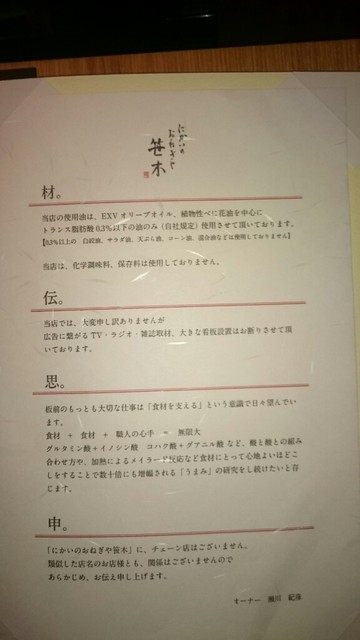 にかいの
おねぎや
笹木
材。
当店の使用油は、EXVオリーブオイル、植物性べに花油を中心に
トランス脂肪酸0.3%以下の油のみ（自社規定）使用させて頂いております。
【0.3%以上の 白絞油、サラダ油、天ぷら油、コーン油、混合油などは使用しておりません】
当店は、化学調味料、保存料は使用しておりません。
伝。
当店では、大変申し訳ありませんが
広告に繋がるTV・ラジオ・雑誌取材、大きな看板設置はお断りさせて頂
いております。
思。
板前のもっとも大切な仕事は「食材を支える」という意識で日々望んでい
ます。
食材 + 食材 + 職人の心手 = 無限大
グルタミン酸+イノシン酸 コハク酸+グアニル酸 など、酸と酸との組み
合わせ方や、加熱によるメイラード反応など食材にとって心地よいほどこ
しをすることで数十倍にも増幅される「うまみ」の研究をし続けたいと存
じます。
申。
「にかいのおねぎや笹木」に、チェーン店はございません。
類似した店名のお店様とも、関係はございませんので
あらかじめ、お伝え申し上げます。
オーナー